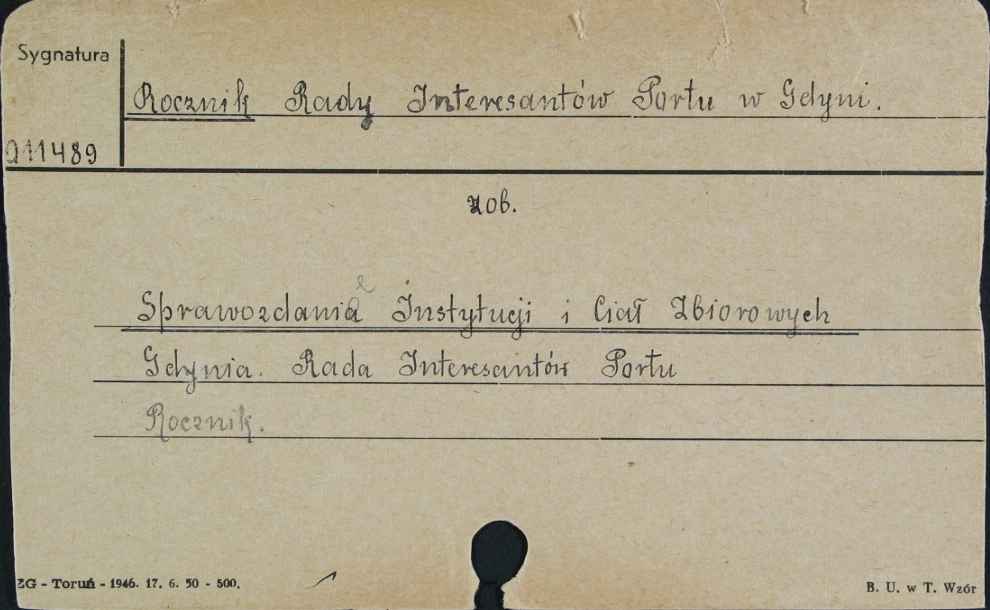 Sygnatura
Rocznik Rady Interesantów Portu w Gdyni.
011489
zob.
Sprawozdania Instytucji i Ciał Zbiorowych
Gdynia. Rada Interesantów Portu
Rocznik.
ZG - Toruń - 1946. 17. 6. 50 - 500.
B. U. w T. Wzór